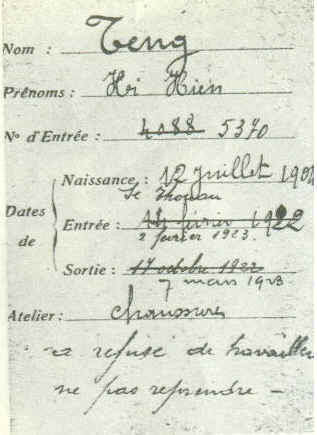 Nom : Teng
Prénoms : Hi Hien
N° d'Entrée : 4088 5370
Naissance : 12 Juillet 190
Dates de
Entrée : 14 février 1922
2 février 1923.
Sortie : 17 octobre 1922
7 mars 1923
Atelier : Chaussures
a refusé de travailler
ne pas reprendre —